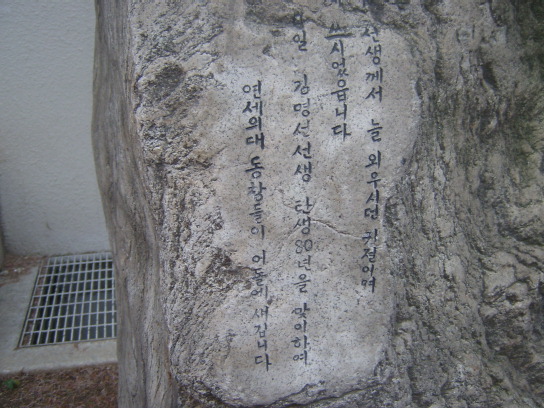 선생께서 늘 외우시던 귀절이며
쓰시었읍니다
일 김명선선생 탄생80년을 맞이하여
연세의대 동창들이 이돌에 새깁니다